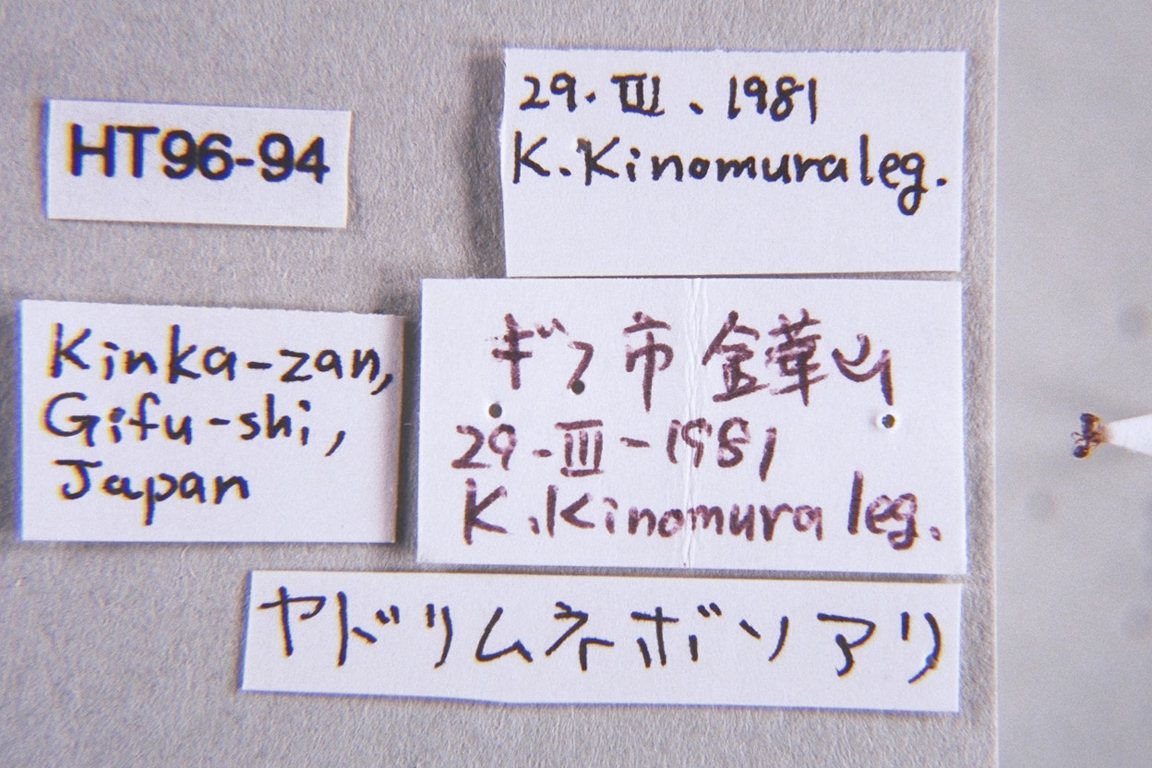 HT96-94
29. III. 1981
K. Kinomura leg.
Kinka-zan,
Gifu-shi,
Japan
ギフ市金華山
29-III-1981
K. Kinomura leg.
ヤドリムネボソアリ